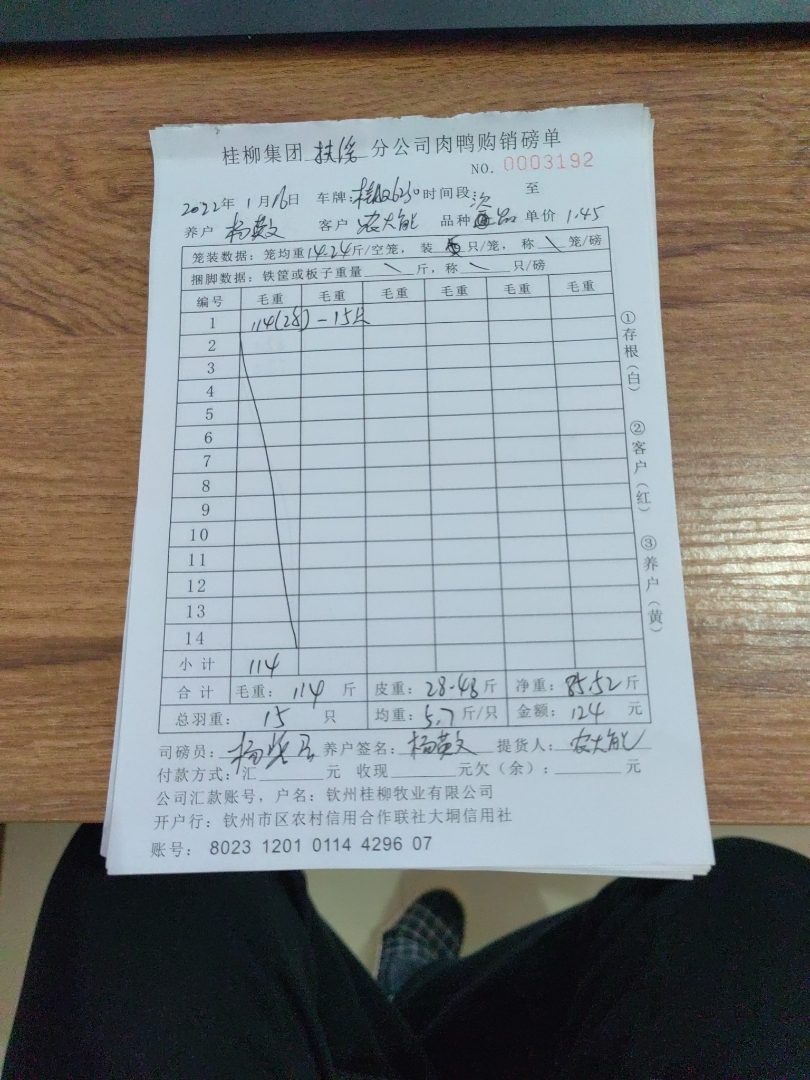 桂柳集团 扶 分公司肉鸭购销磅单
NO. 0003192
2022年 1月16日 车牌: 时间段 至
养户 杨英文 客户 农大能 品种 次品 单价 1.45
笼装数据: 笼均重14.24斤/空笼, 装 只/笼, 称 \ 笼/磅
捆脚数据: 铁筐或板子重量 \ 斤, 称 \ 只/磅
编号 毛重 毛重 毛重 毛重 毛重 毛重
1 114(28)-15只
2
3
4
5
6
7
8
9
10
11
12
13
14
小计 114
合计 毛重: 114 斤 皮重: 28.48斤 净重: 85.52斤
总羽重: 15 只 均重: 5.7斤/只 金额: 124 元
司磅员: 杨 养户签名: 杨英文 提货人: 农大能
付款方式: 汇 元 收现 元欠(余): 元
公司汇款账号, 户名: 钦州桂柳牧业有限公司
开户行: 钦州市区农村信用合作联社大垌信用社
账号: 8023 1201 0114 4296 07
①存根(白)
②客户(红)
③养户(黄)